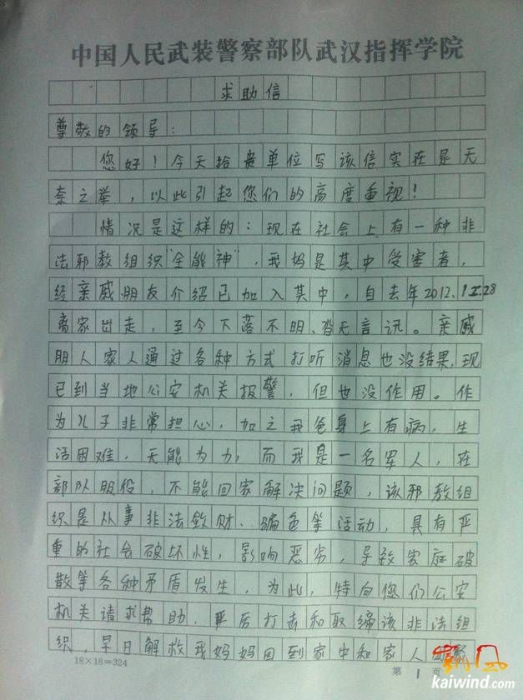 中国人民武装警察部队武汉指挥学院
求助信
尊敬的领导：
您好！今天给贵单位写该信实在是无
奈之举，以此引起您们的高度重视！
情况是这样的：现在社会上有一种非
法邪教组织"全能神"，我妈是其中受害者，
经亲戚朋友介绍已加入其中，自去年2012.12.28
离家出走，至今下落不明、杳无言讯。亲戚
朋人家人通过各种方式打听消息也没结果，现
已到当地公安机关报警，但也没作用。作
为儿子非常担心，加之我爸身上有病，生
活困难，无能为力，而我是一名军人，在
部队服役，不能回家解决问题，该邪教组
织是从事非法敛财、骗色等活动，具有严
重的社会破坏性，影响恶劣，导致家庭破
散等各种矛盾发生，为此，特向您们公安
机关请求帮助，严厉打击和取缔该非法组
织，早日解救我妈妈回到家中和家人
18×18=324
第 1 页
凯风
kaiwind.com